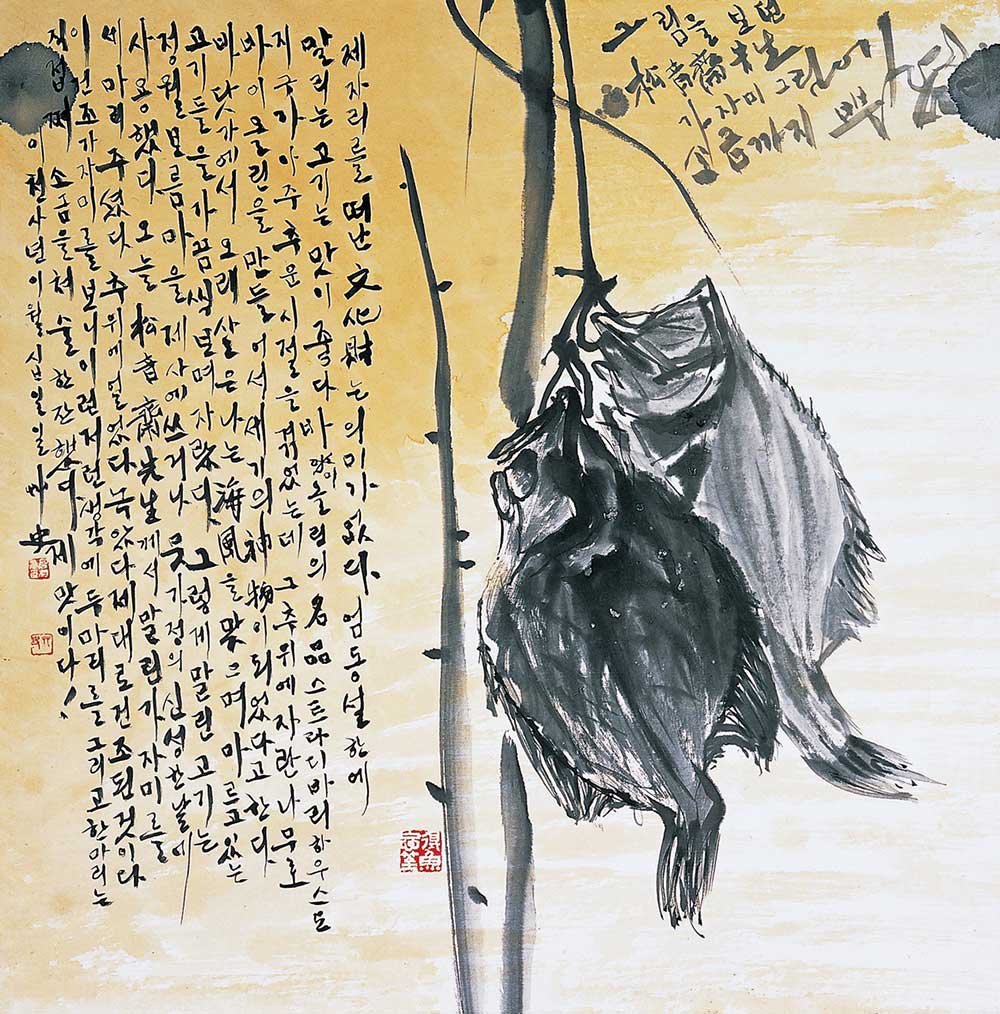 제자리를 떠난 文化財는 의미가 없다. 엄동설한에
말리는 고기는 맛이 좋다 바이올린의 名品 스트라디바리하우스도
지구가 아주 추운시절을 겪었는데 그 추위에 자란 나무로
바이올린을 만들어서 세기의 神物이 되었다고 한다
바닷가에서 오래 살은 나는 海風을 맞으며 마르고 있는
고기들을 가끔씩 보며 자랐다. 그렇게 말린 고기는
정월보름 마을 제사에 쓰거나 웃가정의 신성한 날에
사용했다. 오늘 松音齋先生께서 말린 가자미를
세마리 주셨다. 추위에 얼었다 녹았다 제대로 건조된 것이다
이 건조가자미를 보니 이런저런 생각에 두마리를 그리고 한마리는
직접 소금을 쳐 술 한잔 했다 제 맛이다!
이천사년 이월 십일일 史
그림을 보면
松音齋 先生
가자미 그린
소금까지